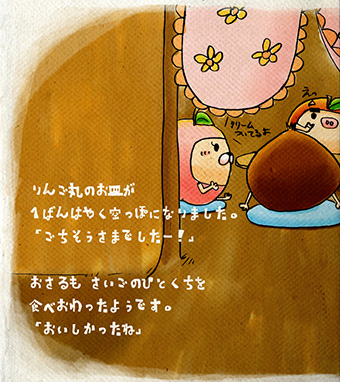 えっ
クリーム
ついてるよ
りんご丸のお皿が
1ばんはやく空っぽになりました。
「ごちそうさまでしたー！」
おさるも さいごのひとくちを
食べおわったようです。
「おいしかったね」